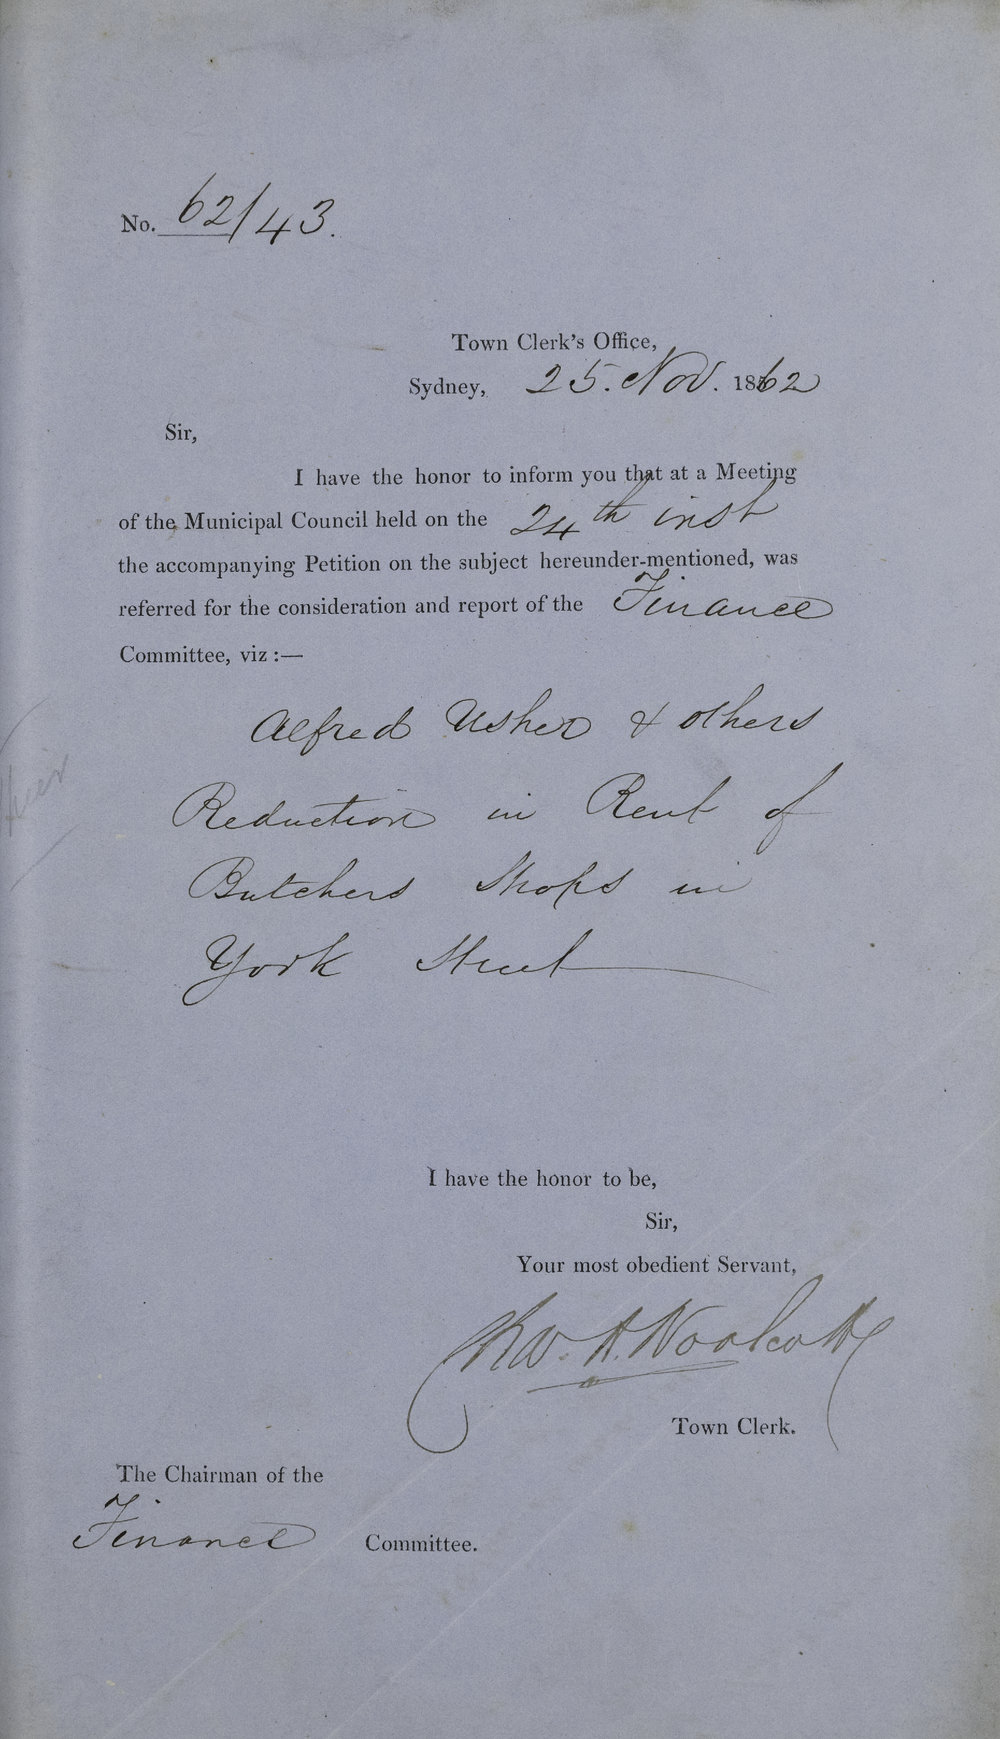 No. 62/43.
Town Clerk's Office,
Sydney, 25. Nov. 1862
Sir,
I have the honor to inform you that at a Meeting
of the Municipal Council held on the 24th inst
the accompanying Petition on the subject hereunder-mentioned, was
referred for the consideration and report of the Finance
Committee, viz :—
Alfred Usher & others
Reduction in Rent of
Butchers Shops in
York Street
I have the honor to be,
Sir,
Your most obedient Servant,
Woolcott
Town Clerk.
The Chairman of the
Finance Committee.